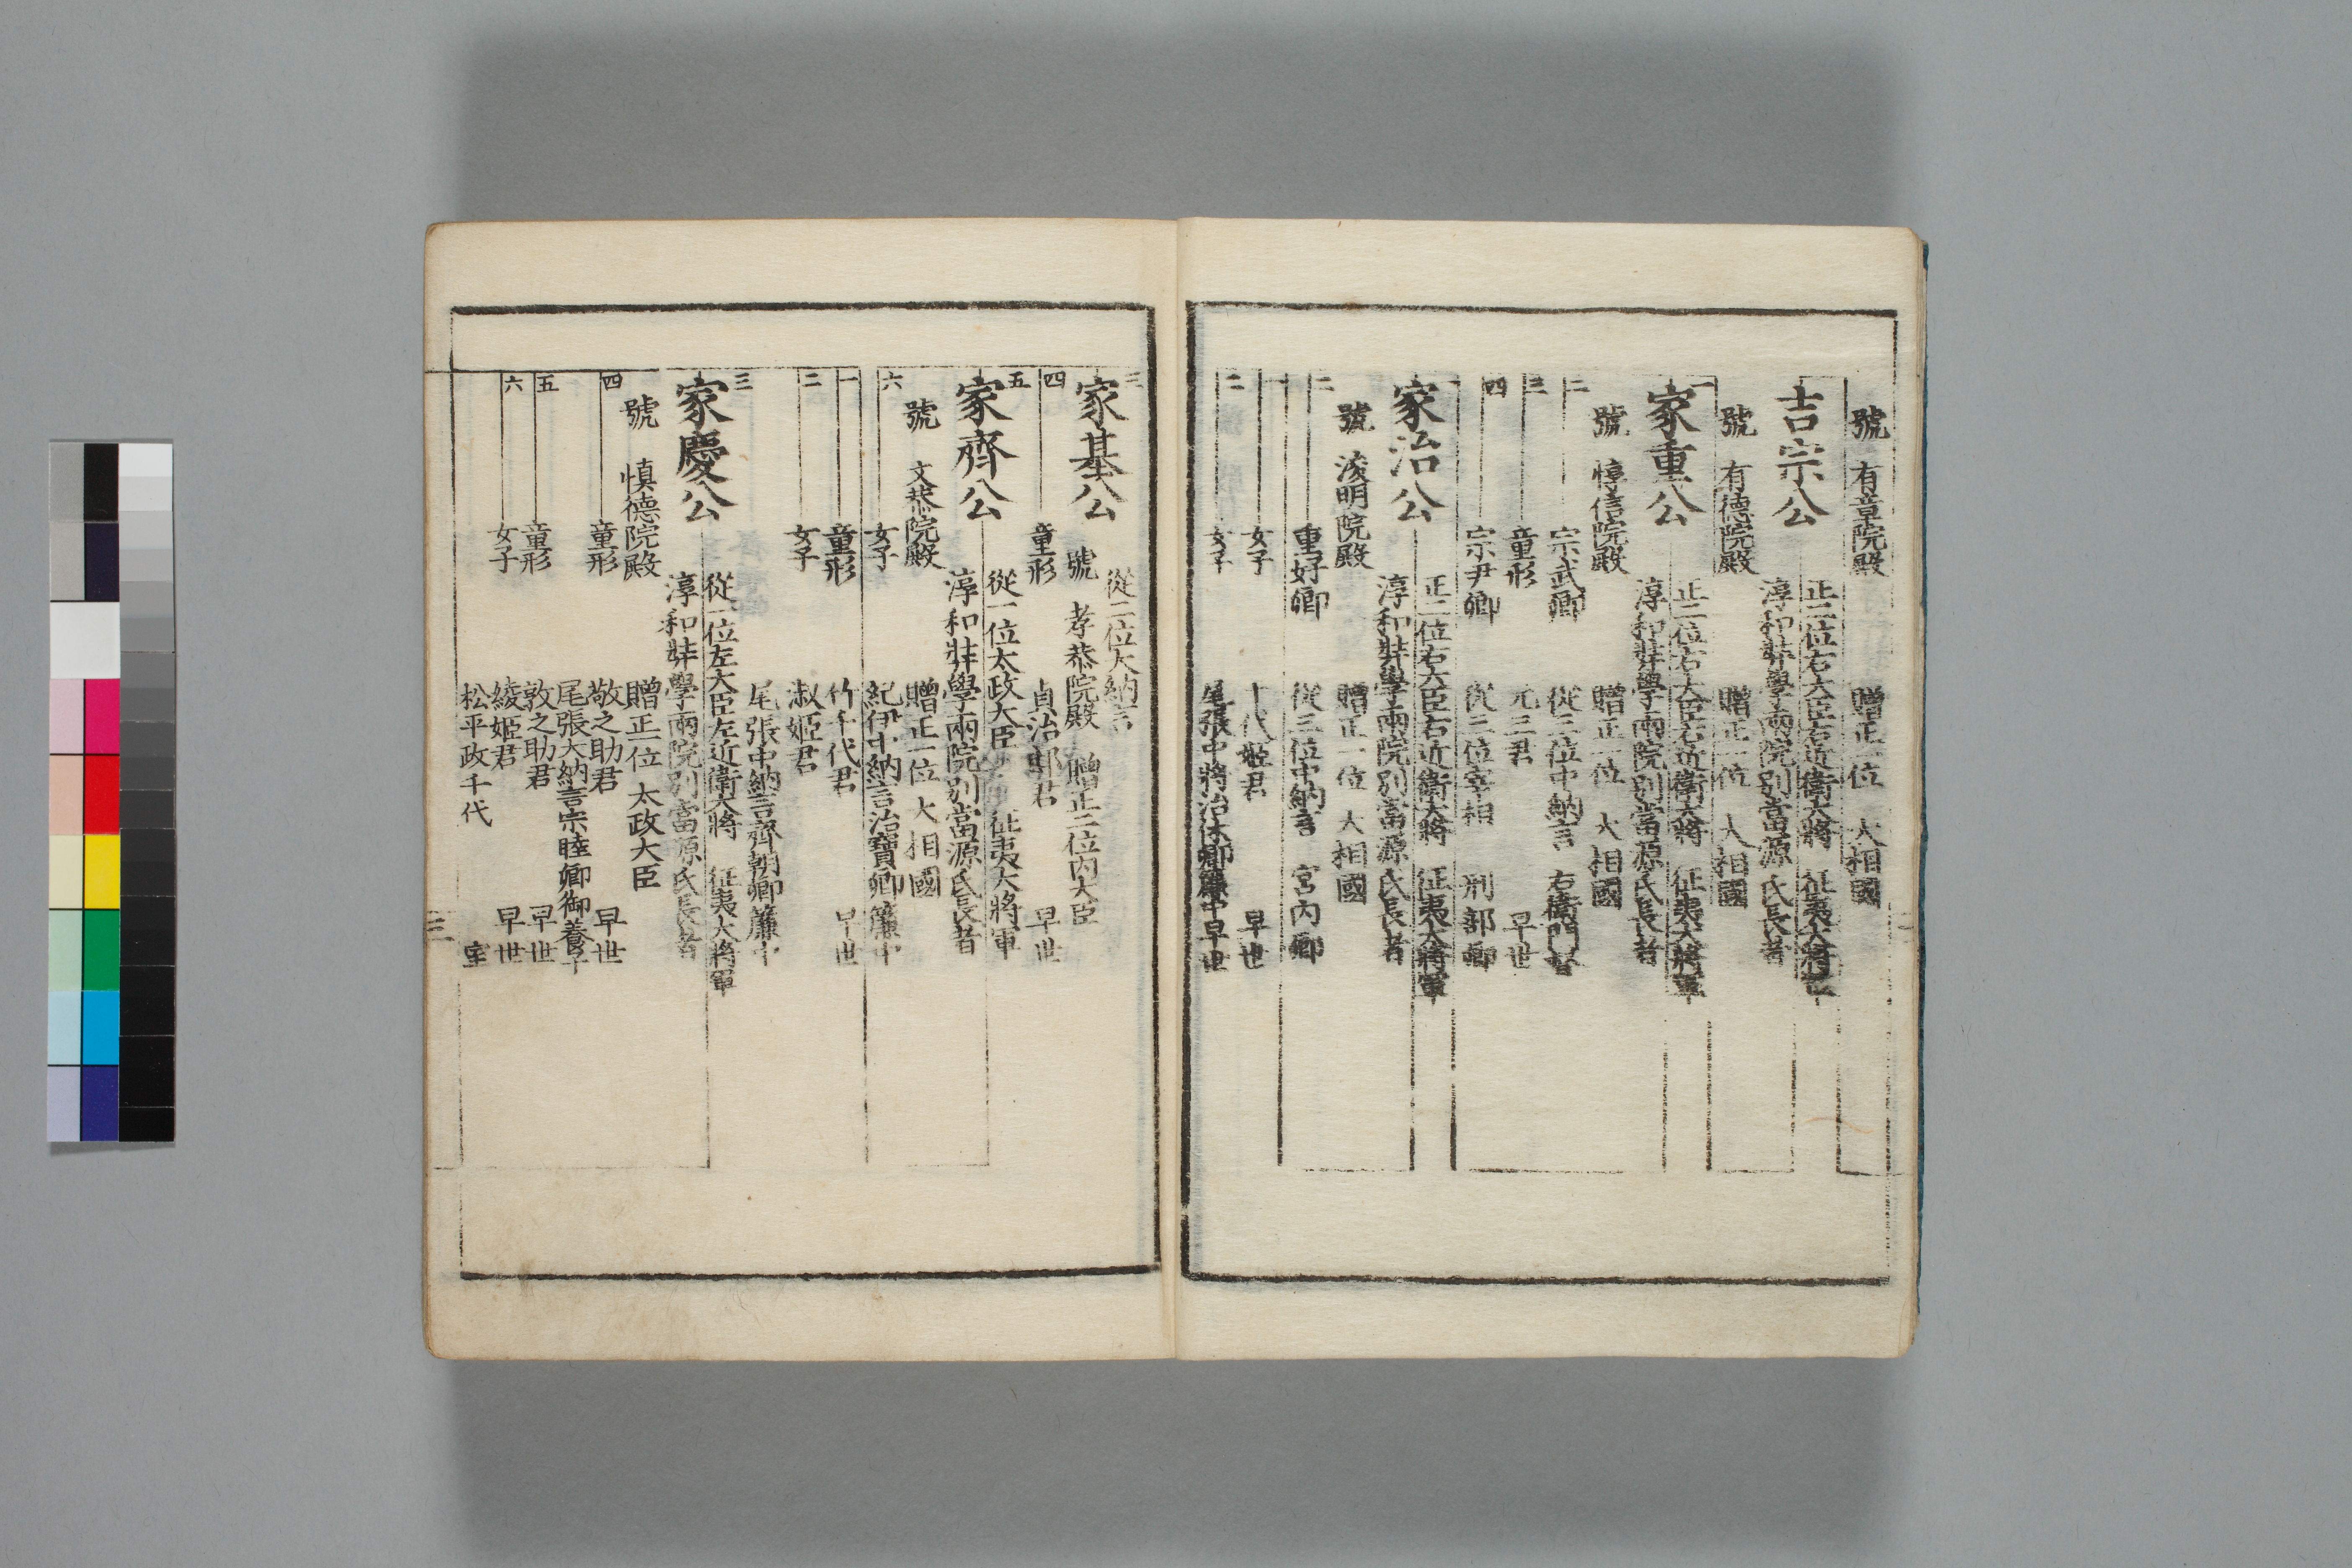 號 有章院殿 贈正一位 大相國
吉宗公 正二位右大臣右近衛大將 征夷大將軍
淳和弉學兩院別當源氏長者
號 有德院殿 贈正一位 大相國
一
家重公 正二位右大臣右近衛大將 征夷大將軍
淳和弉學兩院別當源氏長者
號 惇信院殿 贈正一位 大相國
二 宗武卿 從三位中納言 右衛門督
三 童形 元三君 早世
四 宗尹卿 從三位宰相 刑部卿
一
家治公 正二位右大臣右近衛大將 征夷大將軍
淳和弉學兩院別當源氏長者
號 浚明院殿 贈正一位 大相國
二 重好卿 從三位中納言 宮内卿
一 女子 十代姬君 早世
二 女子 尾張中將治休卿簾中早世
三
家基公 從二位大納言
號 孝恭院殿 贈正二位内大臣
四 童形 貞治郎君 早世
五
家齊公 從一位太政大臣 征夷大將軍
淳和弉學兩院別當源氏長者
號 文恭院殿 贈正一位 大相國
六 女子 紀伊中納言治寶卿簾中
一 童形 竹千代君 早世
二 女子 淑姬君
尾張中納言齊朝卿簾中
三
家慶公 從一位左大臣左近衛大將 征夷大將軍
淳和弉學兩院別當源氏長者
號 慎德院殿 贈正一位 太政大臣
四 童形 敬之助君 早世
尾張大納言宗睦卿御養子
五 童形 敦之助君 早世
六 女子 綾姬君 早世
松平政千代 室
三